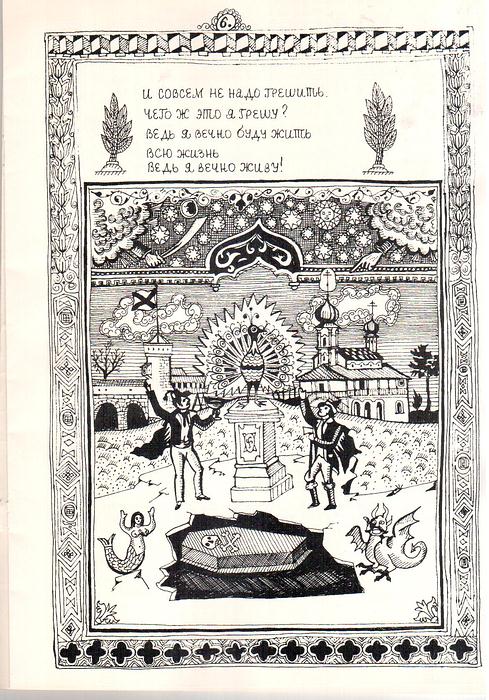 6.
И СОВСЕМ НЕ НАДО ГРЕШИТЬ.
ЧЕГО Ж ЭТО Я ГРЕШУ?
ВЕДЬ Я ВЕЧНО БУДУ ЖИТЬ
ВСЮ ЖИЗНЬ
ВЕДЬ Я ВЕЧНО ЖИВУ!